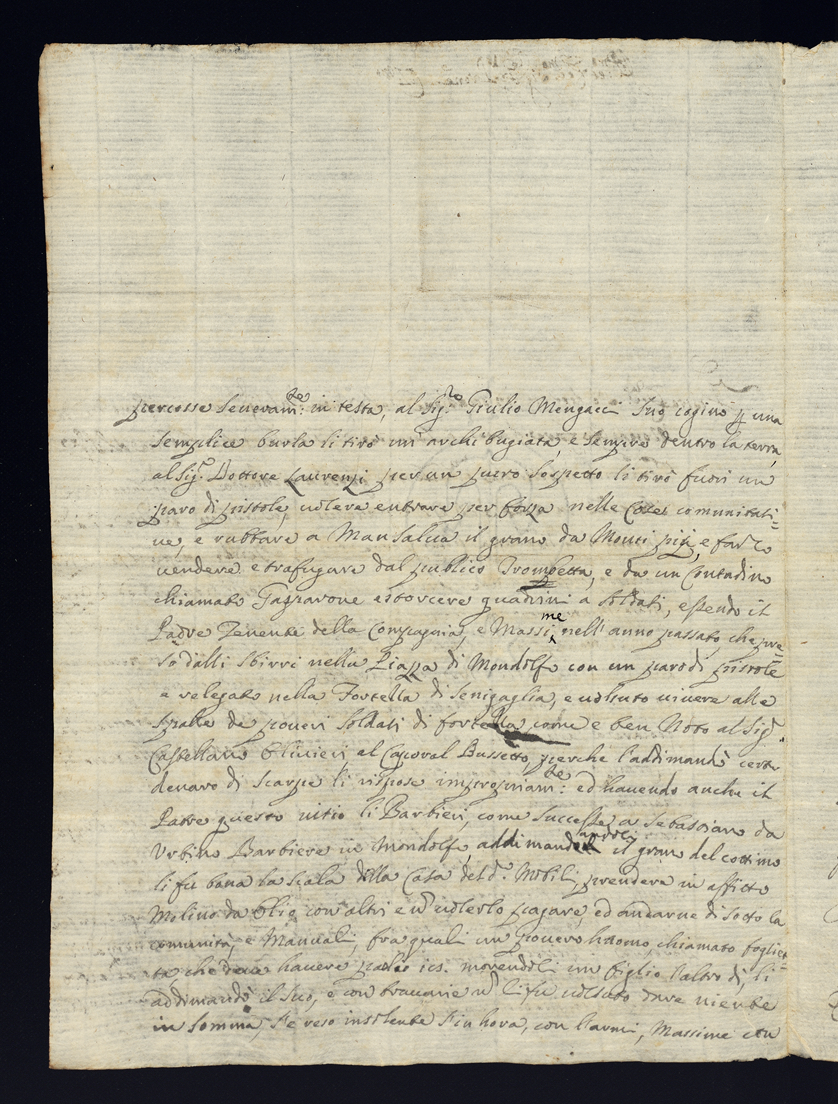 percosse Severam:te in testa, al Sig:ro Giulio Mengacci Suo cogino p una
semplice burla li tirò un archibugiata e sempre dentro la terra,
al Sig:r Dottore Laurenzi per un puro sospetto li tirò fuori un
paro di pistole, voleva entrare per forza nelle Case comunitati=
ve, e rubbare a Man Salva il grano da Monti pij, e farlo
vendere e trafugare dal publico Trombetta, e da un Contadino
chiamato Gasparone estorcere quadrini a Soldati, essendo il
Padre Tenente della Compagnia, e Massime nell' anno passato, che pre=
so dalli Sbirri nella Piazza di Mondolfo con un paro di pistole
e relegato nella Fortezza di Senigaglia, e voluto vivere alle
spalle de poveri Soldati di come e ben Noto al Sig:r
Castellano Olivieri al Caporal Bussetto, perche l'addimandò certo
denaro di Scarpe li rispose impropriam:te ed havendo anche il
Padre questo vitio li Barbieri, come successe a Sebastiano da
Urbino Barbiere in Mondolfo il grano del cottimo
li fu la scala della Casa del d:o Mobili, prendere in affitto
Molino da Olio con altri e n volerlo pagare, ed andarne di Sotto la
comunità, e Manuali, fra quali un povero homo, chiamato
te che deve havere morendoli un figlio l'altro dì, li
addimandò il Suo, e con n li fu voluto dare niente
in Somma, S'e reso insolente Fin hora, con l'armi, Massime con